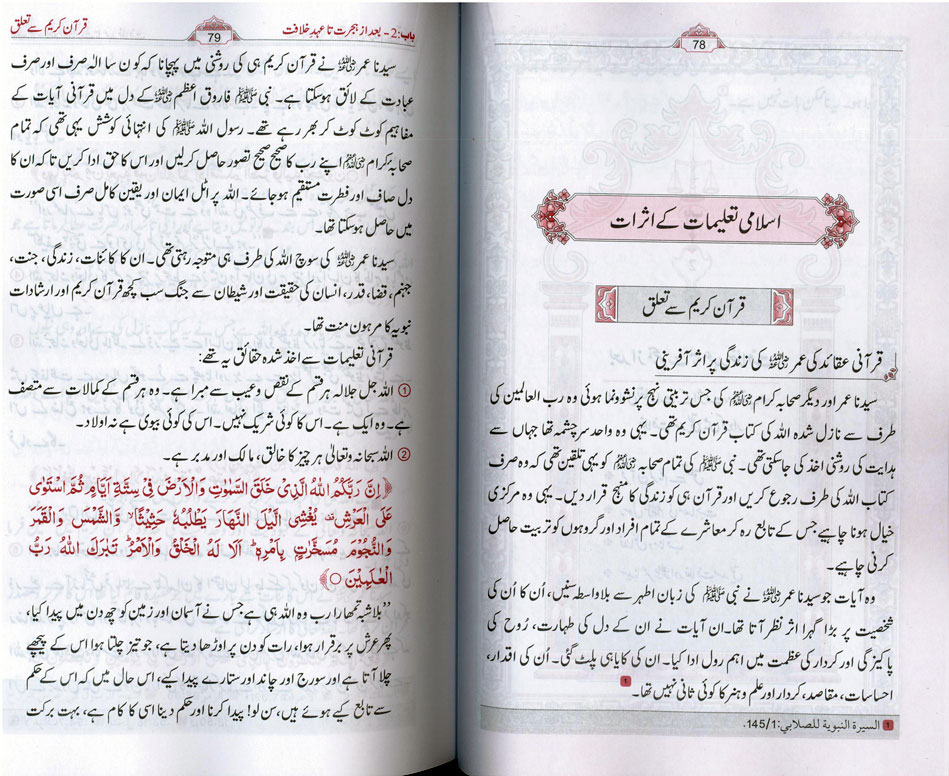 78
اسلامی تعلیمات کے اثرات
قرآن کریم سے تعلق
قرآنی عقائد کی عمر رضی اللہ عنہ کی زندگی پر اثر آفرینی
سیدنا عمر اور دیگر صحابہ کرام رضی اللہ عنہم کی جس تربیتی نہج پر نشوونما ہوئی وہ رب العالمین کی
طرف سے نازل شدہ اللہ کی کتاب قرآن کریم تھی۔ یہی وہ واحد سرچشمہ تھا جہاں سے
ہدایت کی روشنی اخذ کی جاسکتی تھی۔ نبی ﷺ کی تمام صحابہ رضی اللہ عنہم کو یہی تلقین تھی کہ وہ صرف
کتاب اللہ کی طرف رجوع کریں اور قرآن ہی کو زندگی کا منہج قرار دیں۔ یہی وہ مرکزی
خیال ہونا چاہیے جس کے تابع رہ کر معاشرے کے تمام افراد اور گروہوں کو تربیت حاصل
کرنی چاہیے۔
وہ آیات جو سیدنا عمر رضی اللہ عنہ نے نبی ﷺ کی زبان اطہر سے بلاواسطہ سنیں، اُن کا اُن کی
شخصیت پر بڑا گہرا اثر نظر آتا تھا۔ ان آیات نے ان کے دل کی طہارت، رُوح کی
پاکیزگی اور کردار کی عظمت میں اہم رول ادا کیا۔ ان کی کایا ہی پلٹ گئی۔ اُن کی اقدار،
احساسات، مقاصد، کردار اور علم و ہنر کا کوئی ثانی نہیں تھا۔ ١
١ السيرة النبوية للصلابي: 145/1.
باب: 2 - بعد از ہجرت تا عہدِ خلافت 79 قرآن کریم سے تعلق
سیدنا عمر رضی اللہ عنہ نے قرآن کریم ہی کی روشنی میں پہچانا کہ کون سا الٰہ صرف اور صرف
عبادت کے لائق ہوسکتا ہے۔ نبی ﷺ فاروق اعظم رضی اللہ عنہ کے دل میں قرآنی آیات کے
مفاہیم کوٹ کوٹ کر بھر رہے تھے۔ رسول اللہ ﷺ کی انتہائی کوشش یہی تھی کہ تمام
صحابہ کرام رضی اللہ عنہم اپنے رب کا صحیح صحیح تصور حاصل کرلیں اور اس کا حق ادا کریں تاکہ ان کا
دل صاف اور فطرت مستقیم ہوجائے۔ اللہ پر اٹل ایمان اور یقین کامل صرف اسی صورت
میں حاصل ہوسکتا تھا۔
سیدنا عمر رضی اللہ عنہ کی سوچ اللہ کی طرف ہی متوجہ رہتی تھی۔ ان کا کائنات، زندگی، جنت،
جہنم، قضا، قدر، انسان کی حقیقت اور شیطان سے جنگ سب کچھ قرآن کریم اور ارشادات
نبویہ کا مرہون منت تھا۔
قرآنی تعلیمات سے اخذ شدہ حقائق یہ تھے:
① اللہ جل جلالہ ہر قسم کے نقص و عیب سے مبرا ہے۔ وہ ہر قسم کے کمالات سے متصف
ہے۔ وہ ایک ہے۔ اس کا کوئی شریک نہیں۔ اس کی کوئی بیوی ہے نہ اولاد۔
② اللہ سبحانہ وتعالیٰ ہر چیز کا خالق، مالک اور مدبر ہے۔
﴿إِنَّ رَبَّكُمُ اللّٰهُ الَّذِىْ خَلَقَ السَّمٰوٰتِ وَالْاَرْضَ فِىْ سِتَّةِ اَيَّامٍ ثُمَّ اسْتَوٰى
عَلَى الْعَرْشِ ۟ يُغْشِى الَّيْلَ النَّهَارَ يَطْلُبُهٗ حَثِيْثًا ۙ وَّالشَّمْسَ وَالْقَمَرَ
وَالنُّجُوْمَ مُسَخَّرٰتٍۭ بِاَمْرِهٖ ؕ اَلَا لَهُ الْخَلْقُ وَالْاَمْرُ ؕ تَبٰرَكَ اللّٰهُ رَبُّ
الْعٰلَمِيْنَ ○﴾
”بلاشبہ تمھارا رب وہ اللہ ہی ہے جس نے آسمان اور زمین کو چھ دن میں پیدا کیا،
پھر عرش پر برقرار ہوا، رات کو دن پر اوڑھا دیتا ہے، جو تیز چلتا ہوا اس کے پیچھے
چلا آتا ہے اور سورج اور چاند اور ستارے پیدا کیے، اس حال میں کہ اس کے حکم
سے تابع کیے ہوئے ہیں، سن لو! پیدا کرنا اور حکم دینا اسی کا کام ہے، بہت برکت